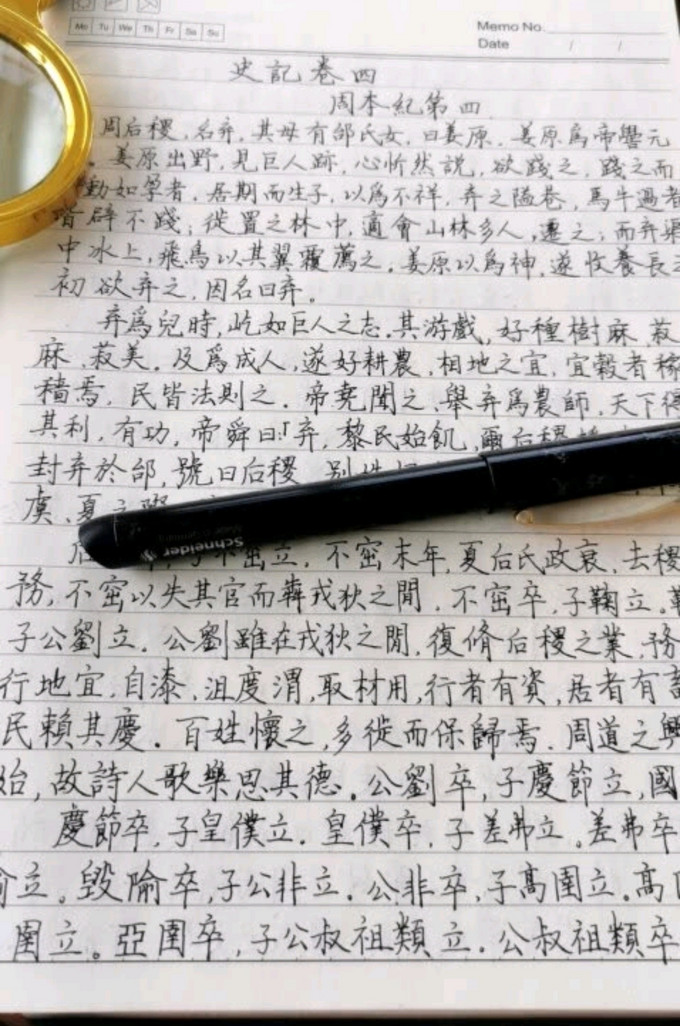 Mo Tu We Th Fr Sa Su
Memo No.
Date / /
史記卷四
周本紀第四
周后稷,名弃。其母有邰氏女,曰姜原。姜原爲帝嚳元
。姜原出野,見巨人跡,心忻然說,欲踐之,踐之而
動如孕者。居期而生子,以爲不祥,弃之隘巷,馬牛過者
皆辟不踐;徙置之林中,適會山林多人,遷之;而弃渠
中冰上,飛鳥以其翼覆薦之。姜原以爲神,遂收養長之
初欲弃之,因名曰弃。
弃爲兒時,屹如巨人之志。其游戲,好種樹麻、菽
麻、菽美。及爲成人,遂好耕農,相地之宜,宜穀者稼
穡焉,民皆法則之。帝堯聞之,舉弃爲農師,天下得
其利,有功。帝舜曰:「弃,黎民始飢,爾后稷
封弃於邰,號曰后稷,別姓
虞、夏之際
立。不窋末年,夏后氏政衰,去稷
務,不窋以失其官而犇戎狄之閒。不窋卒,子鞠立。鞠
子公劉立。公劉雖在戎狄之閒,復脩后稷之業,務
行地宜,自漆、沮度渭,取材用,行者有資,居者有畜
民賴其慶。百姓懷之,多徙而保歸焉。周道之興
始,故詩人歌樂思其德。公劉卒,子慶節立,國
慶節卒,子皇僕立。皇僕卒,子差弗立。差弗卒
隃立。毀隃卒,子公非立。公非卒,子高圉立。高圉
圉立。亞圉卒,子公叔祖類立。公叔祖類卒
Schneider